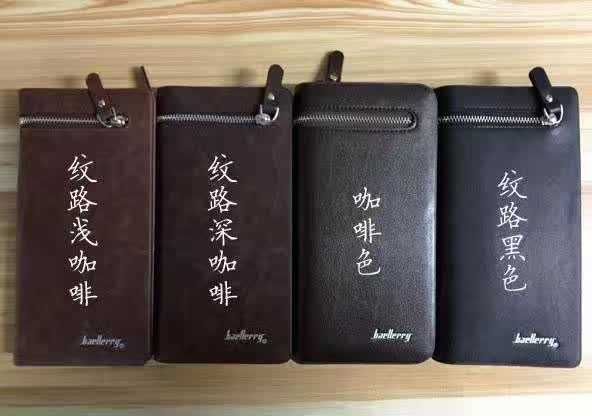 纹路浅咖啡
纹路深咖啡
咖啡色
纹路黑色
baellerry
baellerry
baellerry
baellerry